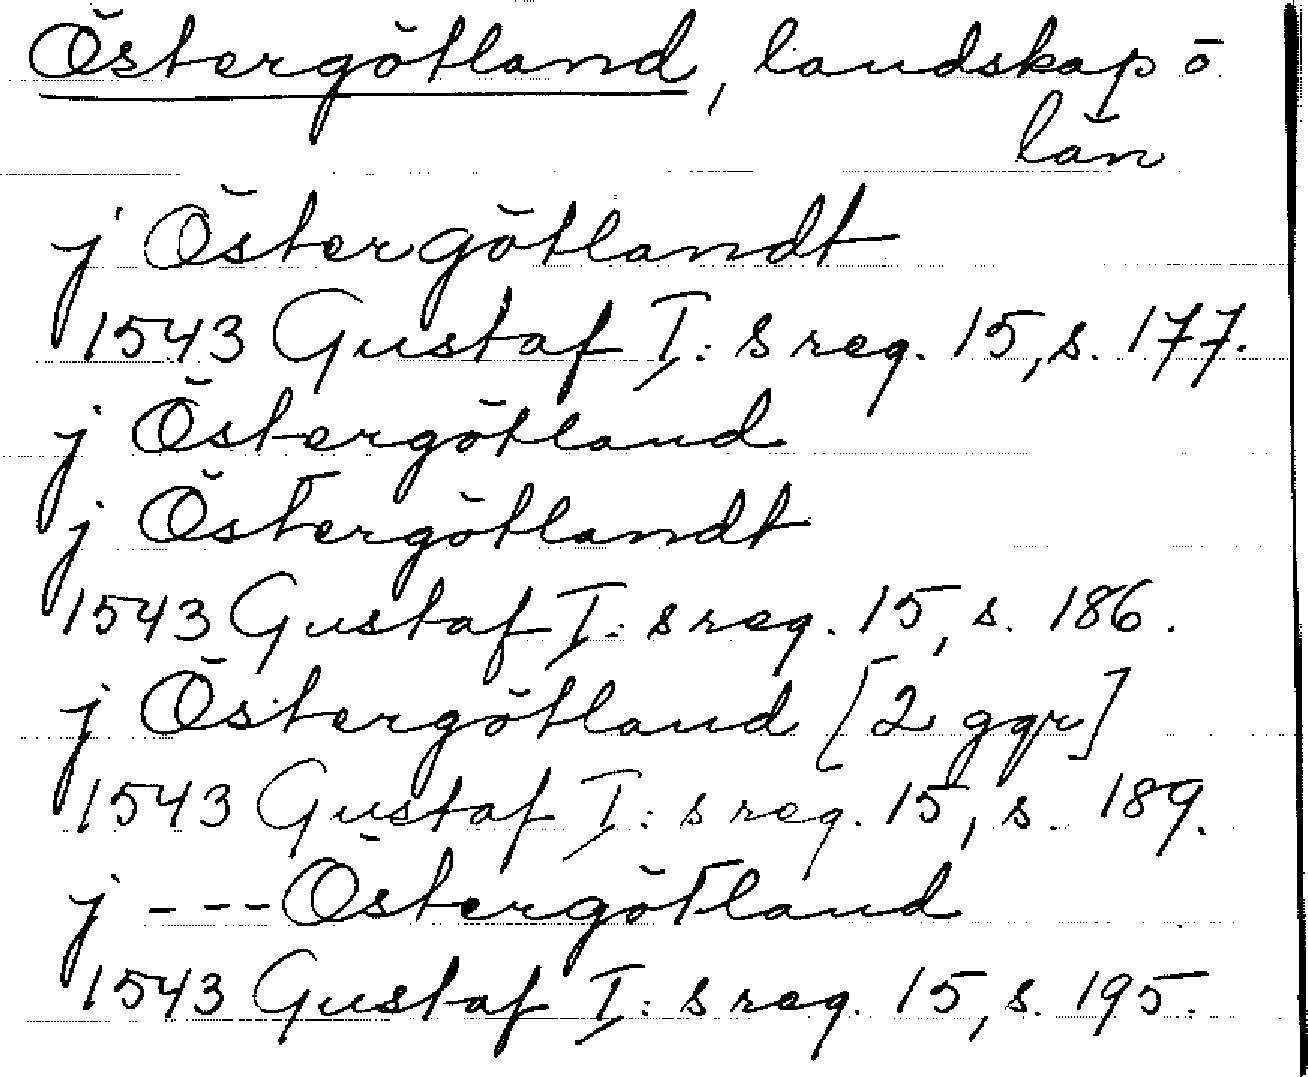 Östergötland, landskap o
län
j Östergötlandt
1543 Gustaf I:s reg. 15, s. 177.
j Östergötland
j Östergötlandt
1543 Gustaf I:s reg. 15, s. 186.
j Östergötland [2 ggr]
1543 Gustaf I:s reg. 15, s. 189.
j --- Östergötland
1543 Gustaf I:s reg. 15, s. 195.